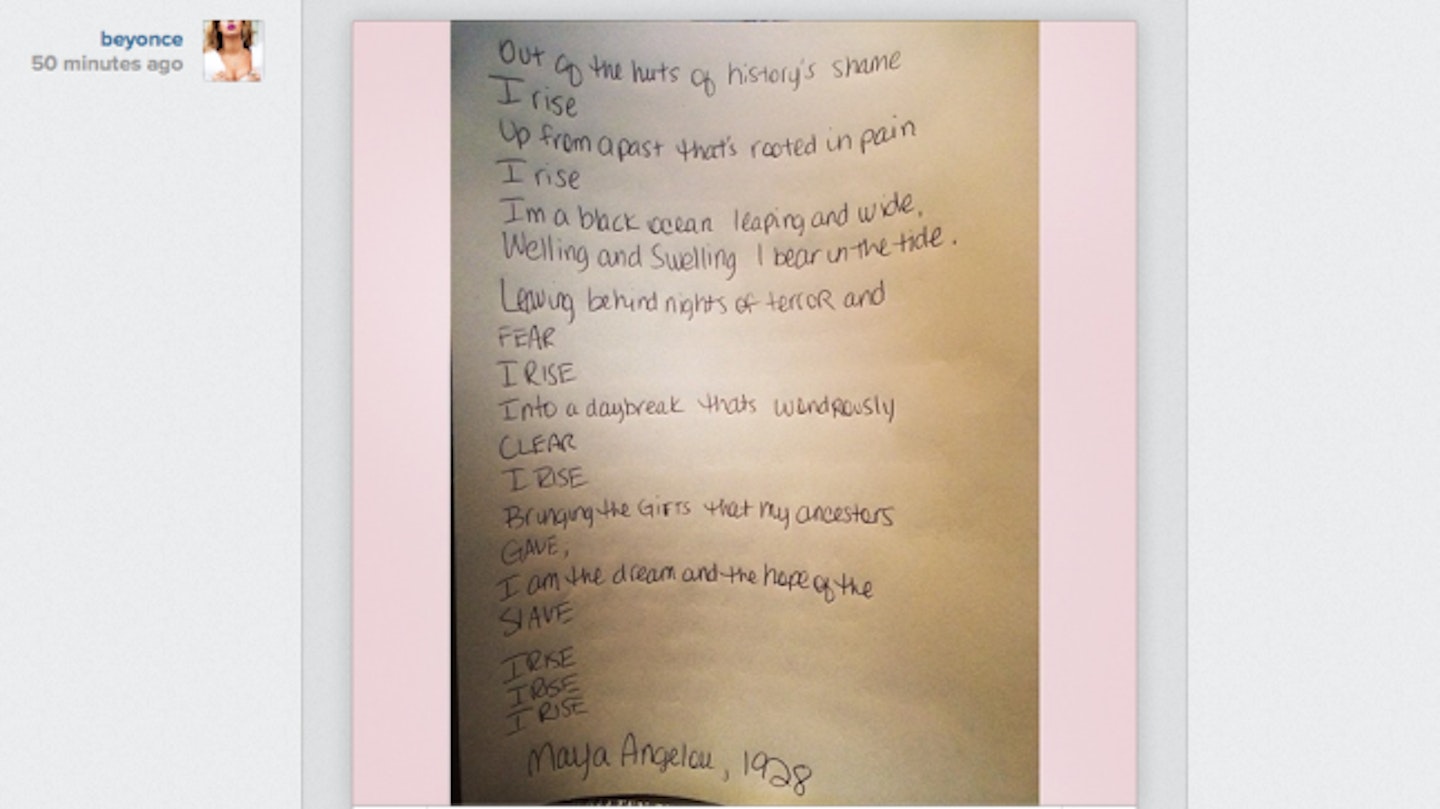 beyonce
50 minutes ago
Out of the huts of history's shame
I rise
Up from a past that's rooted in pain
I rise
Im a black ocean leaping and wide,
Welling and Swelling I bear in the tide.
Leaving behind nights of terroR and
FEAR
I RISE
Into a daybreak thats wondRously
CLEAR
I RISE
Bringing the GIFTS that my ancestors
GAVE,
I am the dream and the hope of the
SlAVE
I RISE
I RISE
I RISE
Maya Angelou, 1928